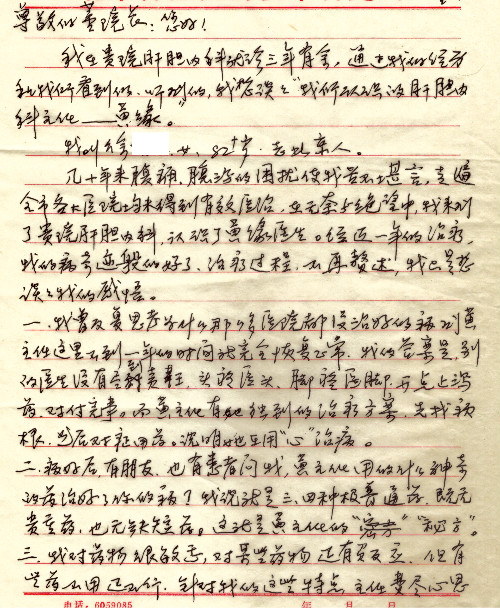 尊敬的黄院长：您好！
我在贵院肝胆内科就诊三年有余，通过我的经历
和我所看到的、听到的，我想谈谈“我所认识的肝胆内
科主任——黄缘”。
我叫徐 女，82岁。老北京人。
几十年来腹痛、腹泻的困扰使我苦不堪言，走遍
全市各大医院均未得到有效医治，在无奈与绝望中，我来到
了贵院肝胆内科，认识了黄缘医生。经近一年的治疗，
我的病奇迹般的好了，治疗过程，不再赘述，我只是想
谈谈我的感悟。
一、我曾反复思考为什么那么多医院都没治好的病到黄
主任这里不到一年的时间就完全恢复正常。我的答案是，别
的医生没有尽到责任，头疼医头，脚疼医脚，再点上泻
药，对付完事。而黄主任有她独到的治疗方案，先找病
根，然后对症用药。说明她在用“心”治病。
二、病好后，有朋友、也有患者问我，黄主任用的什么神奇
的药治好了你的病？我说就是三、四种极普通药，既无
贵重药，也无缺短药。这就是黄主任的“密方”“秘方”。
三、我对药物很敏感，对某些药物还有负反应，但有
些药不用还不行，针对我的这些特点，主任费尽心思
电话：6059085 年 月 日